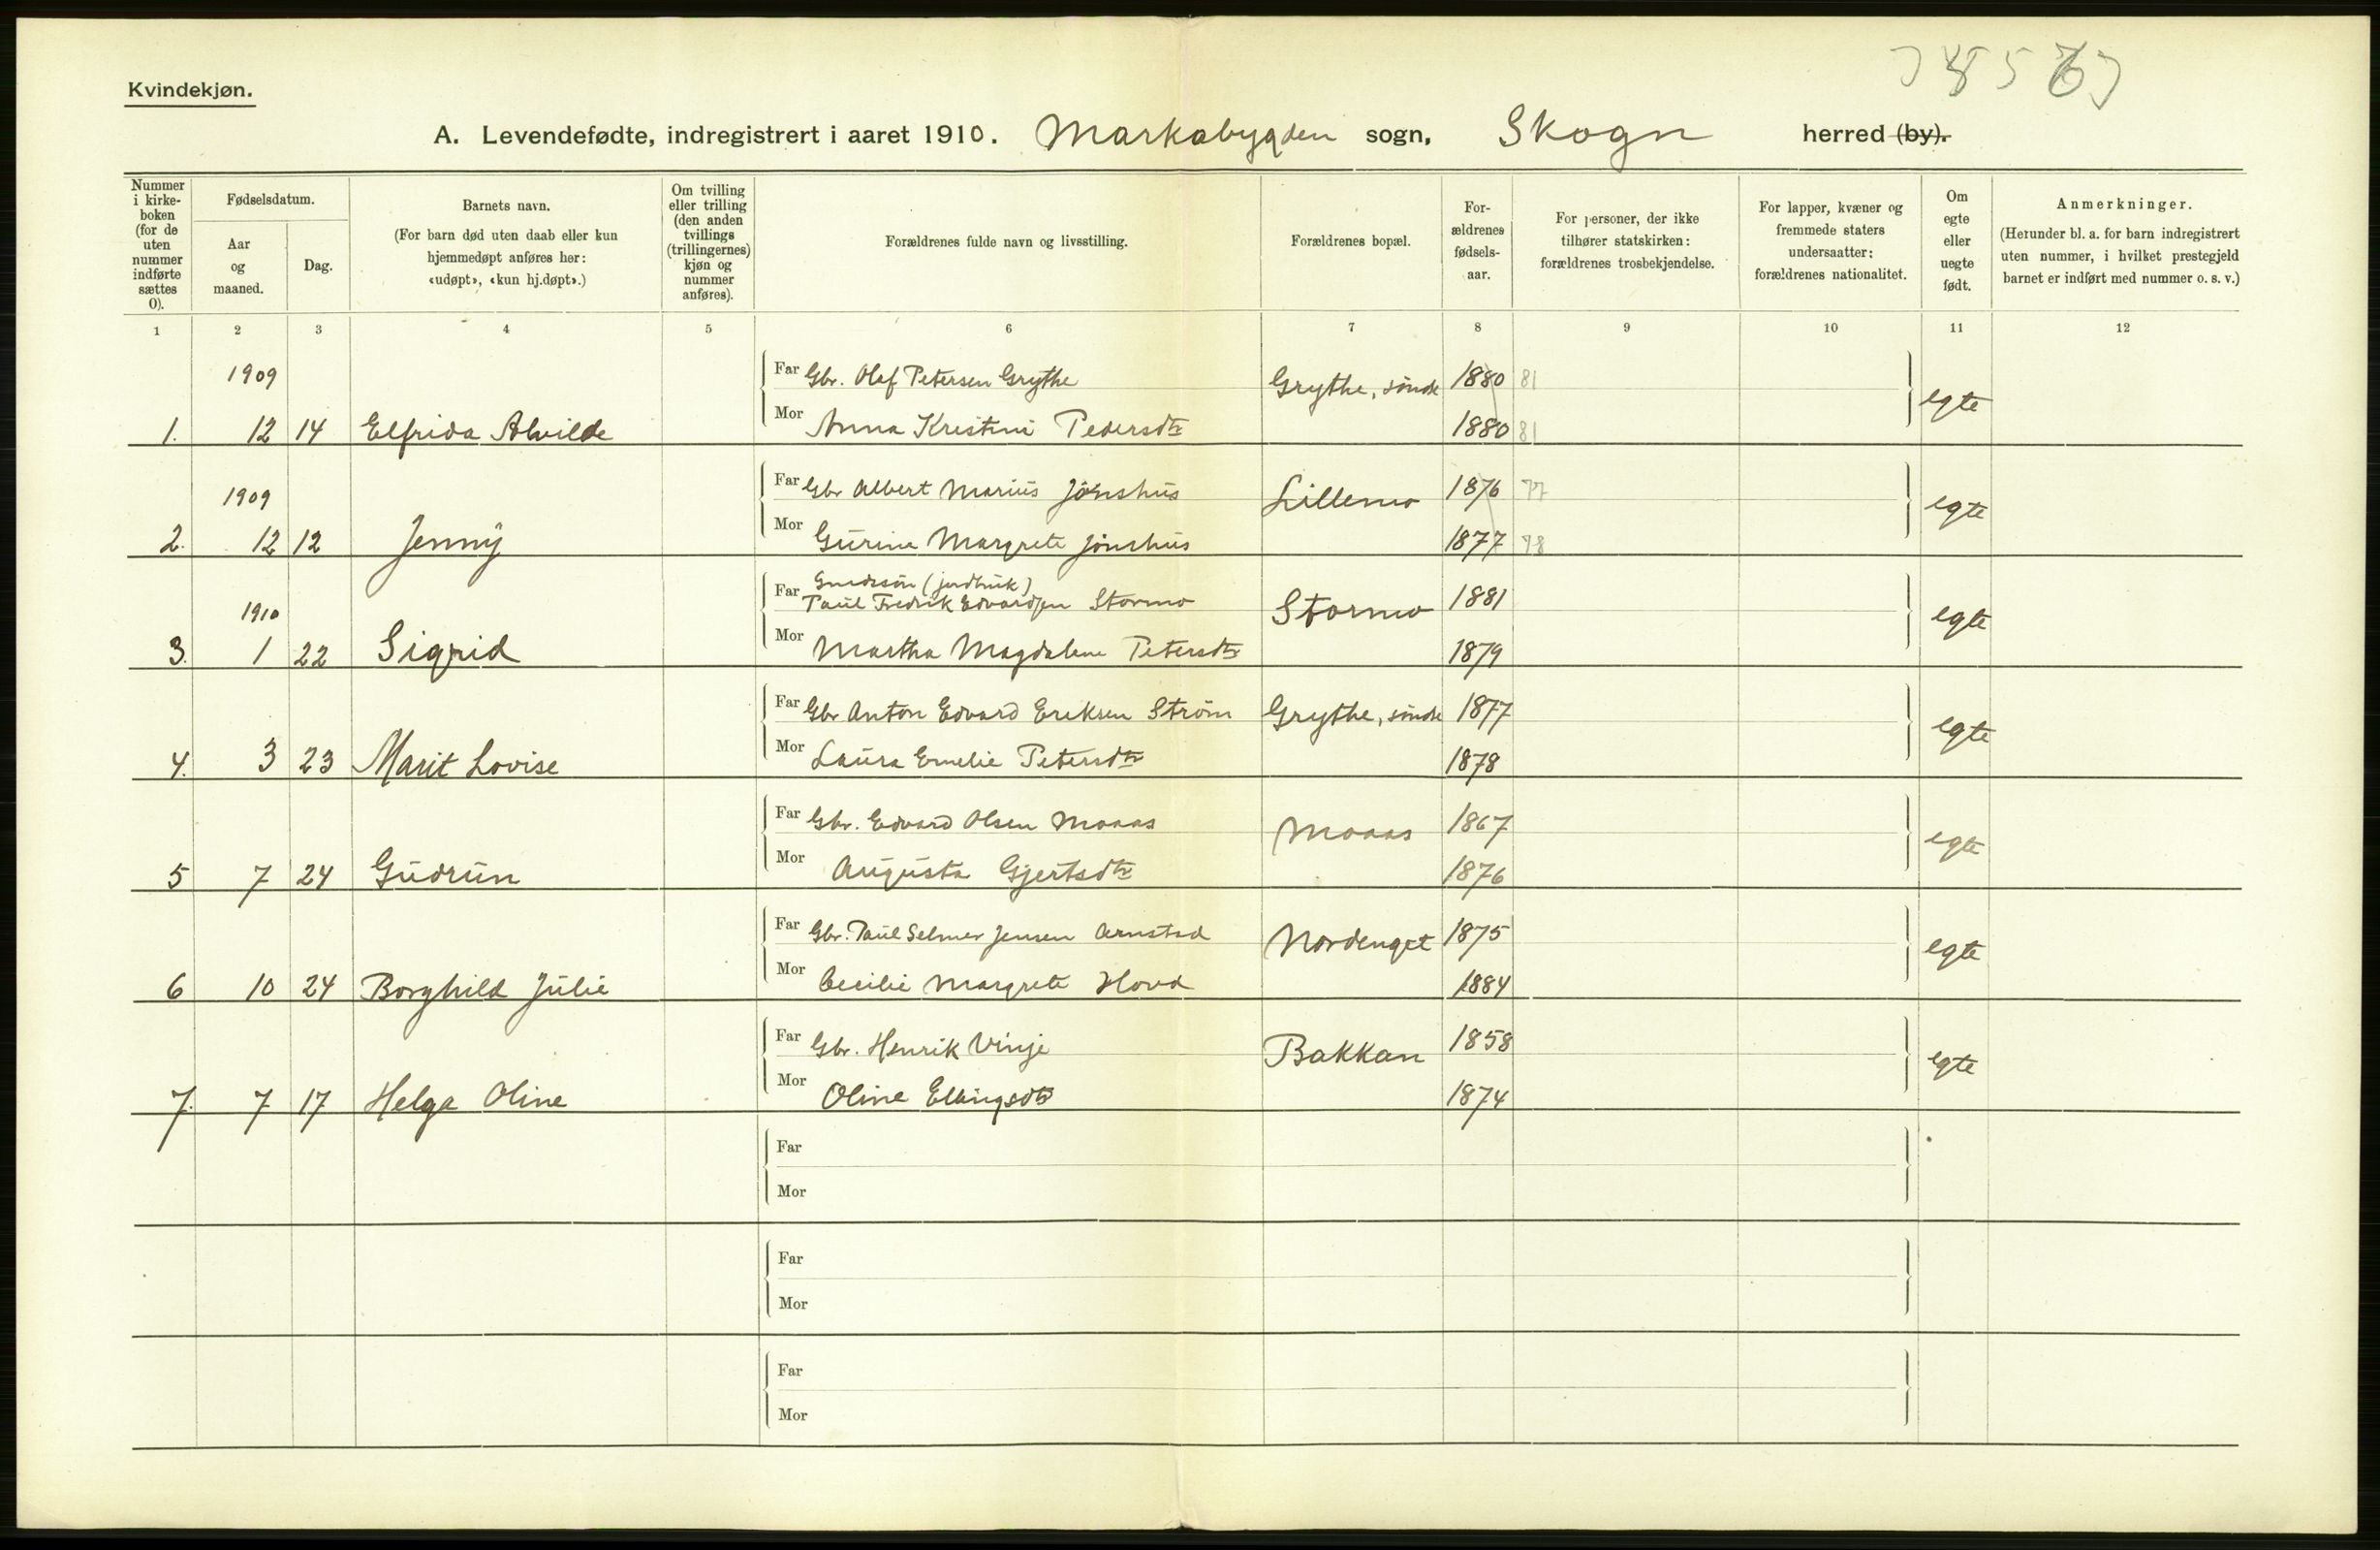 Kvindekjøn.
A. Levendefødte, indregistrert i aaret 1910. Markabygden sogn, Skogn herred (by).
Nummer i kirke-boken (for de uten nummer indførte sættes 0).
Fødselsdatum.
Aar og maaned.
Dag.
Barnets navn.
(For barn død uten daab eller kun hjemmedøpt anføres her: «udøpt», «kun hj.døpt».)
Om tvilling eller trilling (den anden tvillings (trillingernes) kjøn og nummer anføres).
Forældrenes fulde navn og livsstilling.
Forældrenes bopæl.
For-ældrenes fødsels-aar.
For personer, der ikke tilhører statskirken: forældrenes trosbekjendelse.
For lapper, kvæner og fremmede staters undersaatter: forældrenes nationalitet.
Om egte eller uegte født.
Anmerkninger.
(Herunder bl. a. for barn indregistrert uten nummer, i hvilket prestegjeld barnet er indført med nummer o. s. v.)
1 2 3 4 5 6 7 8 9 10 11 12
1909 Far Gbr. Olaf Petersen Grythe Grythe, søndre 1880 81
1. 12 14 Elfrida Alvilde Mor Anna Kristine Pedersdtr 1880 81 egte
1909 Far Gbr Albert Marius Jønshus Lillemo 1876 77
2. 12 12 Jenny Mor Gurine Margrete Jønshus 1877 78 egte
1910 Far Gmdssøn (jordbruk) Paul Fredrik Edvardsen Stormo Stormo 1881
3. 1 22 Sigrid Mor Martha Magdalene Petersdtr 1879 egte
Far Gbr Anton Edvard Eriksen Strøm Grythe, søndre 1877
4. 3 23 Marit Lovise Mor Laura Emelie Petersdtr 1878 egte
Far Gbr. Edvard Olsen Moaas Moaas 1867
5 7 24 Gudrun Mor Augusta Gjertsdtr 1876 egte
Far Gbr. Paul Selmer Jensen Arnstad Nordenget 1875
6 10 24 Borghild Julie Mor Cecilie Margrete Hovd 1884 egte
Far Gbr. Henrik Vinje Bakkan 1858
7. 7 17 Helga Oline Mor Oline Ellingsdtr 1874 egte
Far
Mor
Far
Mor
Far
Mor